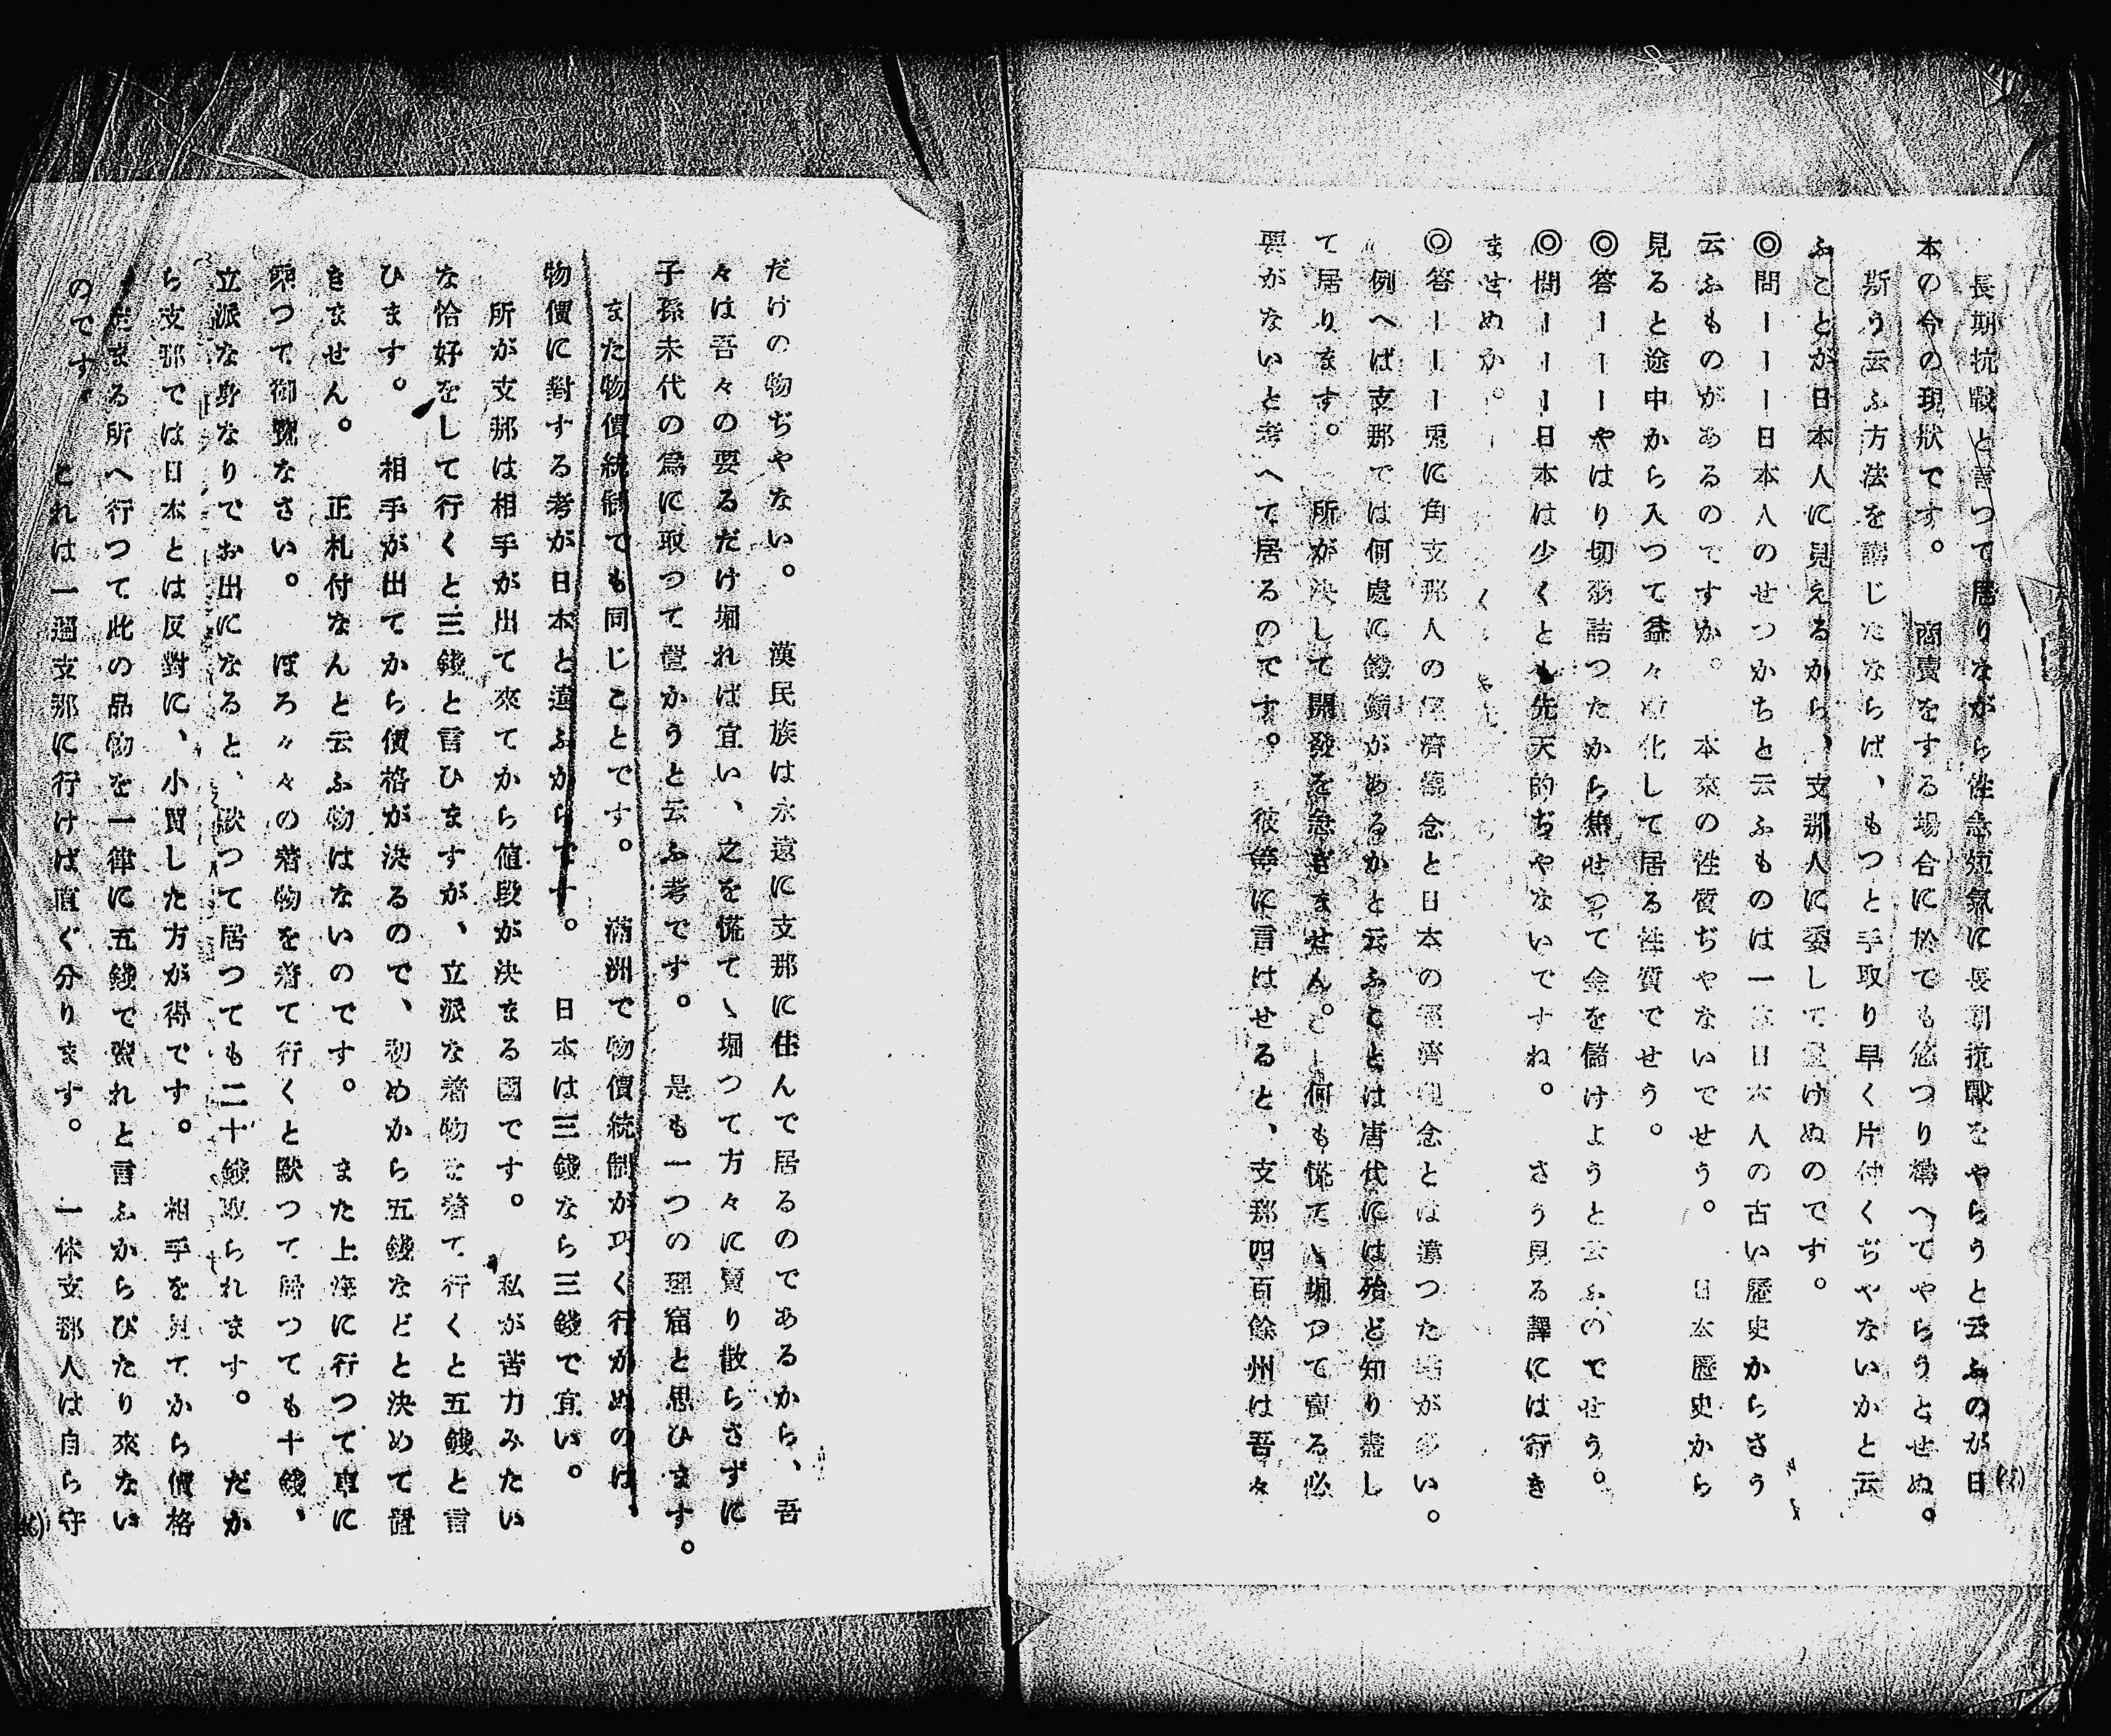 長期抗戰と言つて居りながら性急短氣に長期抗戰をやらうと云ふのが日
本の今の現狀です。　商賣をする場合に於ても悠つり構へてやらうとせぬ。
斯う云ふ方法を講じたならば、もつと手取り早く片付くぢやないかと云
ふことが日本人に見えるから、支那人に委して置けぬのです。
◎問ーーー日本人のせつかちと云ふものは一體日本人の古い歷史からさう
云ふものがあるのですか。　本來の性質ぢやないでせう。　日本歷史から
見ると途中から入つて益々化して居る性質でせう。
◎答ーーーやはり切羽詰つたから焦せつて金を儲けようと云ふのでせう。
◎問ーーー日本は少くとも先天的ぢやないですね。　さう見る譯には行き
ませぬか。
◎答ーーー兎に角支那人の經濟觀念と日本の經濟觀念とは違つた點が多い。
例へば支那では何處に鑛鑛があるかと云ふことは唐代には殆ど知り盡し
て居ります。　所が決して開發を急ぎません。　何も慌てゝ堀つて賣る必
要がないと考へて居るのです。　彼等に言はせると、支那四百餘州は吾々
だけの物ぢやない。　漢民族は永遠に支那に住んで居るのであるから、吾
々は吾々の要るだけ堀れば宜い、之を慌てゝ堀つて方々に賣り散らさずに
子孫末代の爲に取つて置かうと云ふ考です。　是も一つの理窟と思ひます。
また物價統制でも同じことです。　滿洲で物價統制が巧く行かぬのは、
物價に對する考が日本と違ふからです。　日本は三錢なら三錢で宜い。
所が支那は相手が出て來てから値段が決まる國です。　私が苦力みたい
な恰好をして行くと三錢と言ひますが、立派な着物を着て行くと五錢と言
ひます。　相手が出てから價格が決るので、初めから五錢などと決めて置
きません。　正札付なんと云ふ物はないのです。　また上海に行つて車に
乘つて御覽なさい。　ぼろ々々の着物を着て行くと默つて居つても十錢、
立派な身なりでお出になると、默つて居つても二十錢取られます。　だか
ら支那では日本とは反對に、小買した方が得です。　相手を見てから價格
がきまる所へ行つて此の品物を一律に五錢で賣れと言ふからぴたり來ない
のです。　これは一遍支那に行けば直ぐ分ります。　一体支那人は自ら守